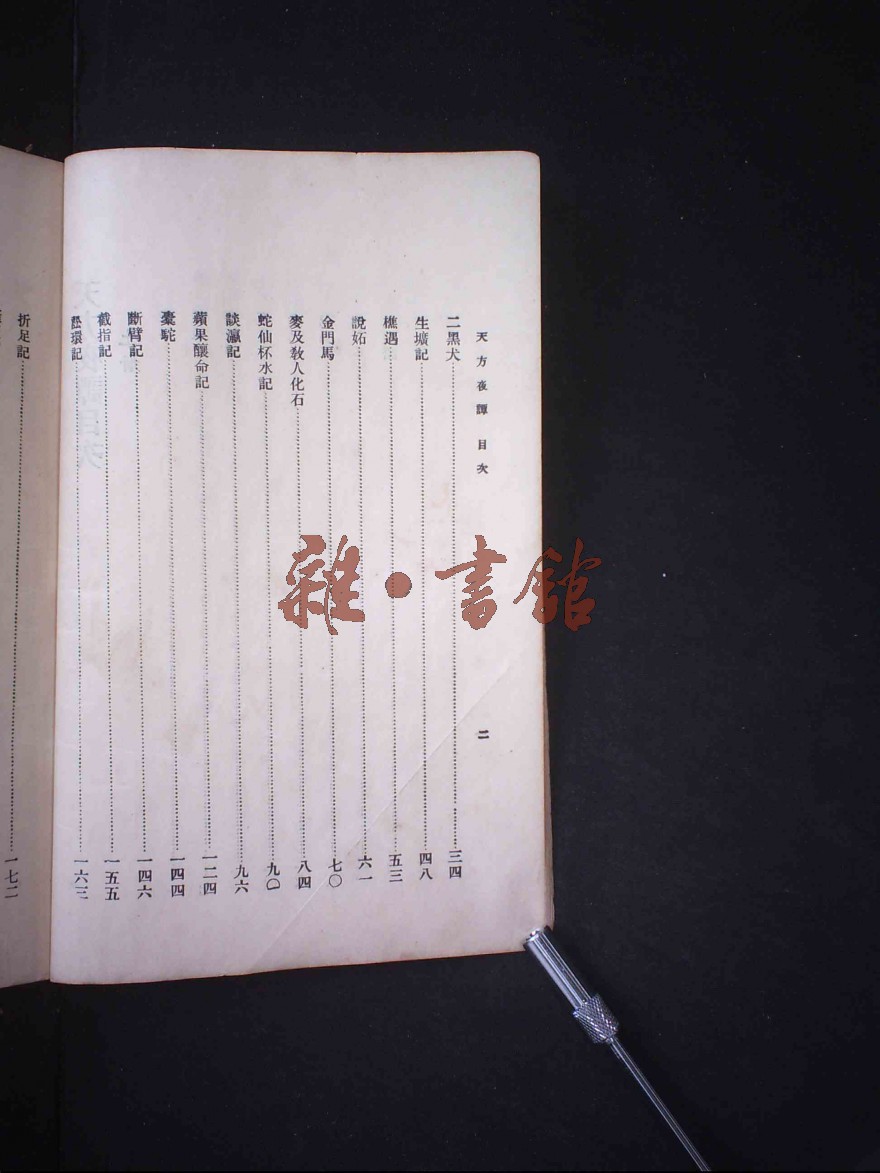 天方夜譚 目次
二
二黑犬……三四
生壙記……四八
樵遇……五三
說妬……六一
金門馬……七〇
麥及教人化石……八四
蛇仙杯水記……九〇
談瀛記……九六
蘋果釀命記……一二四
橐駝……一四四
斷臂記……一四六
截指記……一五五
訟環記……一六三
折足記……一七二
雜·書館